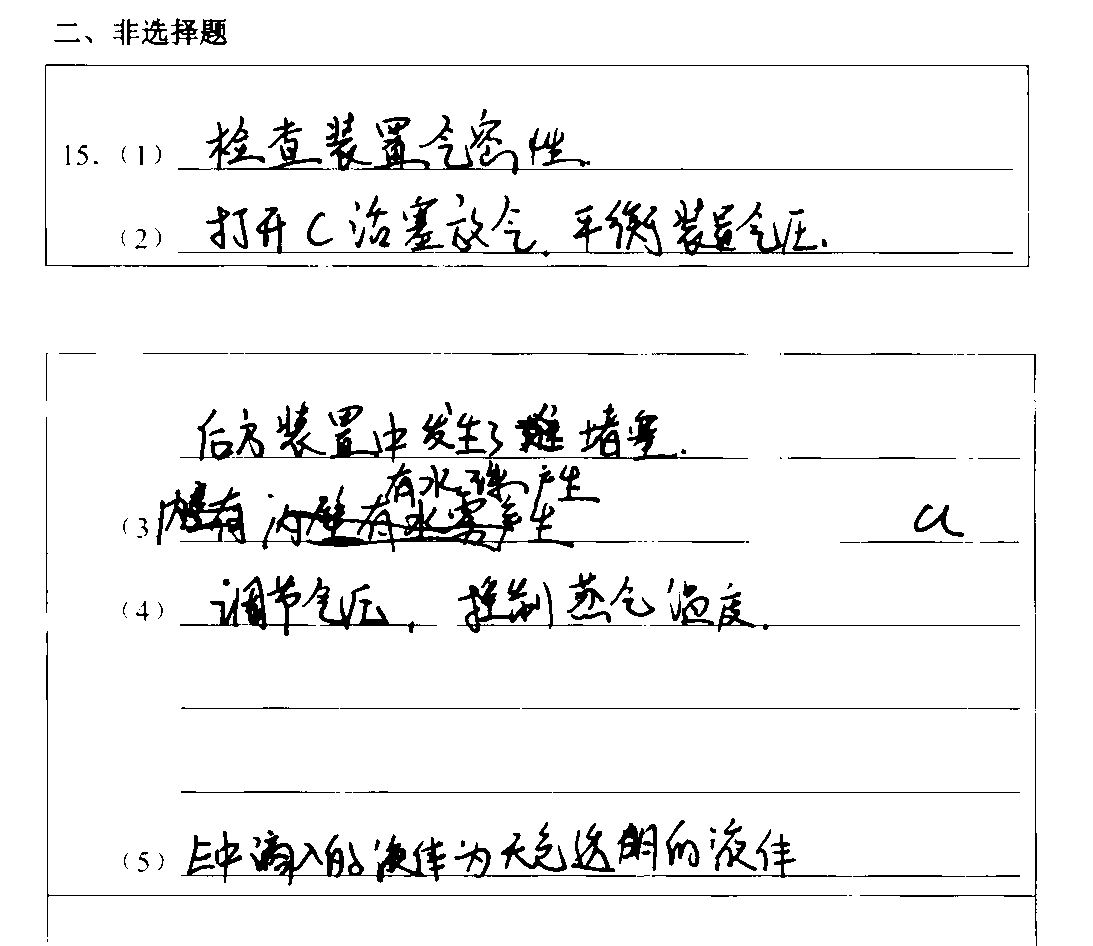 二、非选择题
15.（1） 检查装置气密性.
（2） 打开C活塞放气，平衡装置气压.
后方装置中发生了 堵塞.
有水珠产生
（3 a
（4） 调节气压，控制蒸气温度.
（5） E中滴入的液体为无色透明的液体